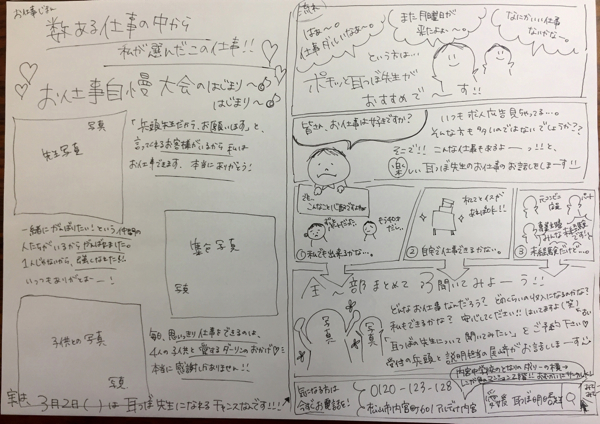 お仕事じまん
数ある仕事の中から
私が選んだこの仕事!!
お仕事自慢大会のはじまり～
はじまり～
写真
先生写真
「兵頭先生だから、お願いします」と、
言ってくれるお客様がいるから私は
お仕事できます。本当にありがとう!
一緒にがんばりたい!という仲間の
人たちがいるからがんばれました。
1人じゃないから、強くなれました!!
いつもありがとまー!
集合写真
写真
子供との写真
写真
毎日、思いっきり仕事ができるのは、
4人の子供と愛するダーリンのおかげ♡
本当に感謝しかありません!!
実は、3月2日( )は耳つぼ先生になれるチャンスなんです!!!
はぁ～。
仕事がしたいなぁ～。
また月曜日が
来たよぉ～。
なにかいい仕事
ないかな～。
という方は…
ポチッと耳つぼ先生が
おすすめで～す!!
皆さん、お仕事は好きですか?
いつも求人広告見ちゃってる…。
そんな方も多いのではないでしょうか??
そこで!!こんな仕事もあるよーっ!!と、
楽しい耳つぼ先生のお仕事のお話をしまーす!!
①私でも出来るかな…。
机とイスが
あればOK!!
②自宅で仕事できるかな。
③未経験だけど…。
全～部まとめて聞いてみよーう!!
写真
写真
どんなお仕事なんだろう?どのくらいの収入になるのかな?
私もできるかな?安心してください!!はいてますよ(笑)
「耳つぼ先生について聞いてみたい」とご予約下さい♡
受付の兵頭と説明担当の尾崎がお話しまーす
気になる方は
今すぐお電話を!
0120-123-128
松山市内宮町601 アルディア内宮
愛媛 耳つぼ 検索